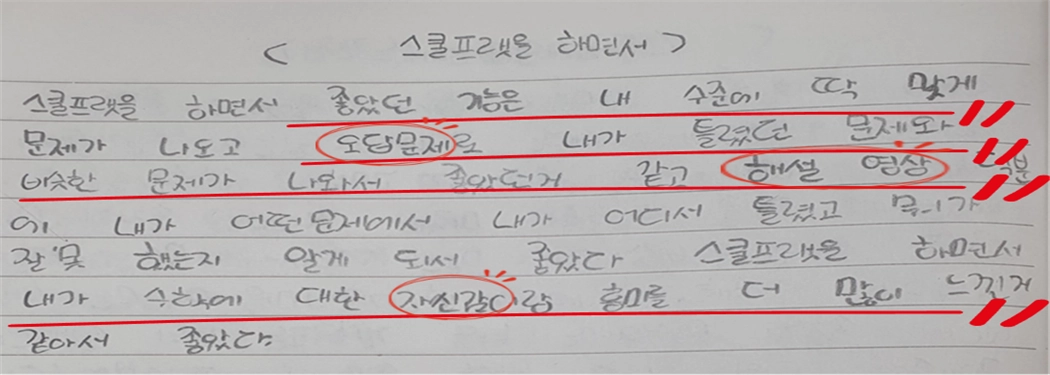 < 스쿨프랫을 하면서 >
스쿨프랫을 하면서 좋았던 기능은 내 수준에 딱 맞게
문제가 나오고 오답문제로 내가 틀렸던 문제와
비슷한 문제가 나와서 좋았던거 같고 해설 영상 덕분
에 내가 어떤문제에서 내가 어디서 틀렸고 뭐가
잘못 했는지 알게 되서 좋았다 스쿨프랫을 하면서
내가 수학에 대한 자신감이랑 흥미를 더 많이 느낀거
같아서 좋았다.